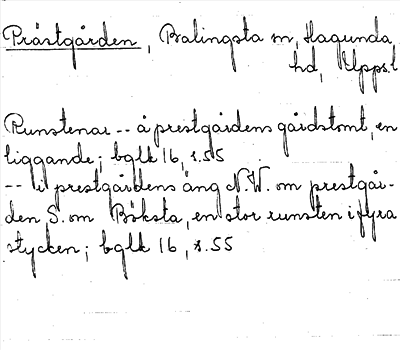 Prästgården, Balingsta sn, Hagunda
hd, Upps. l
Runstenar -- å prestgårdens gårdstomt, en
liggande; bglk 16, s. 55
-- i prestgårdens äng N.W. om prestgår-
den, S. om Böksta, en stor runsten i fyra
stycken; bglk 16, s. 55